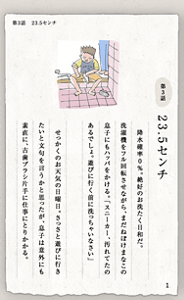 第3話　23.5センチ
第3話
23.5センチ
降水確率0％。絶好のお洗たく日和だ。
洗濯機をフル回転させながら、まだねぼけまなこの
息子にもハッパをかける。「スニーカー、汚れてたの
あるでしょ。遊びに行く前に洗っちゃいなさい」
せっかくのお天気の日曜。さっさと遊びに行き
たいと文句を言うかと思ったが、息子は意外にも
素直に、古歯ブラシ片手に仕事にとりかかる。
1